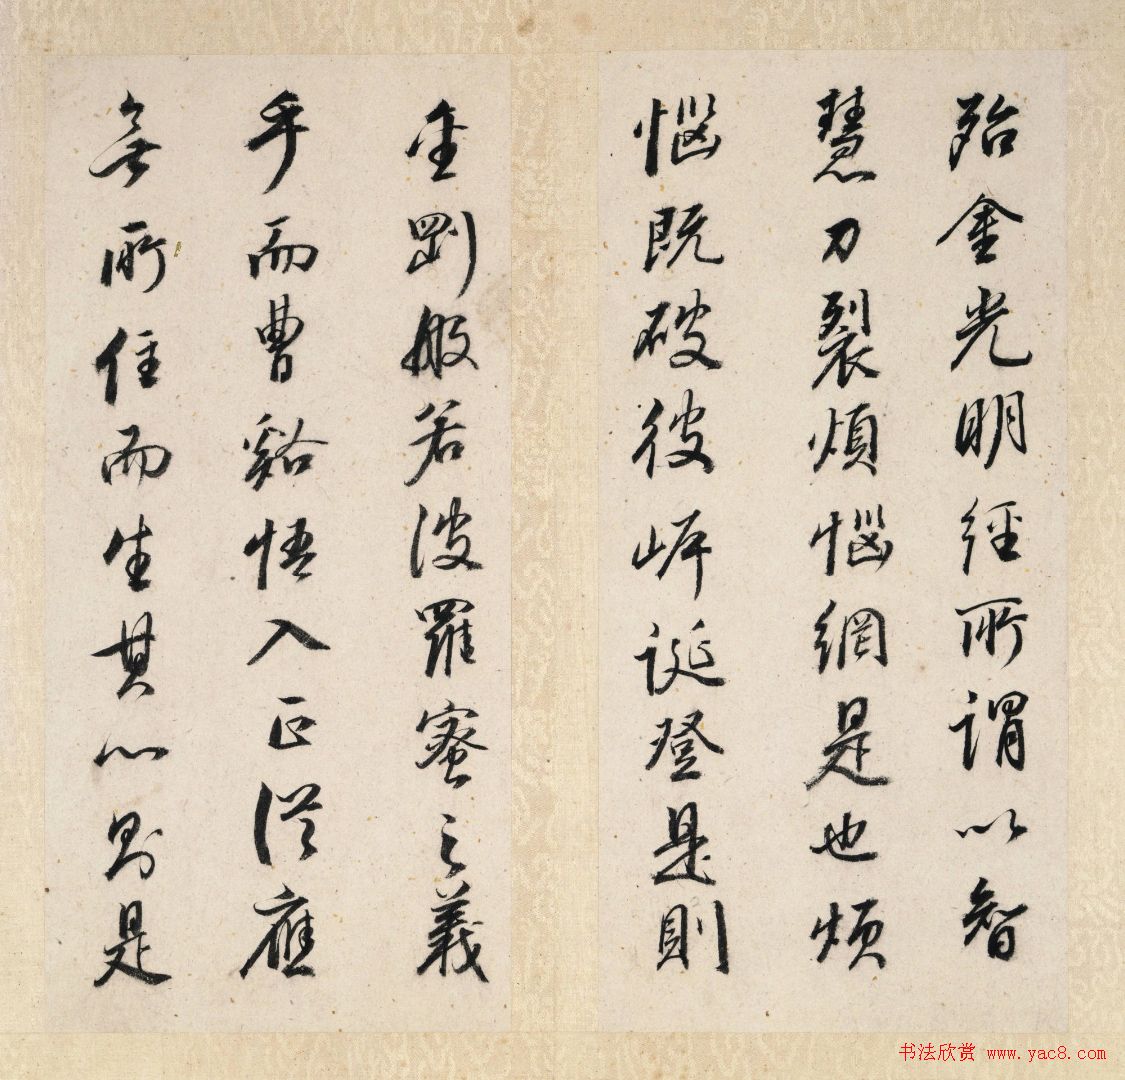 殆金光明經所謂以智
慧刀裂煩惱網是也煩
惱既破彼岸誕登是則
金剛般若波羅蜜之義
乎而曹谿悟入正從應
無所住而生其心則是
书法欣赏 www.yac8.com